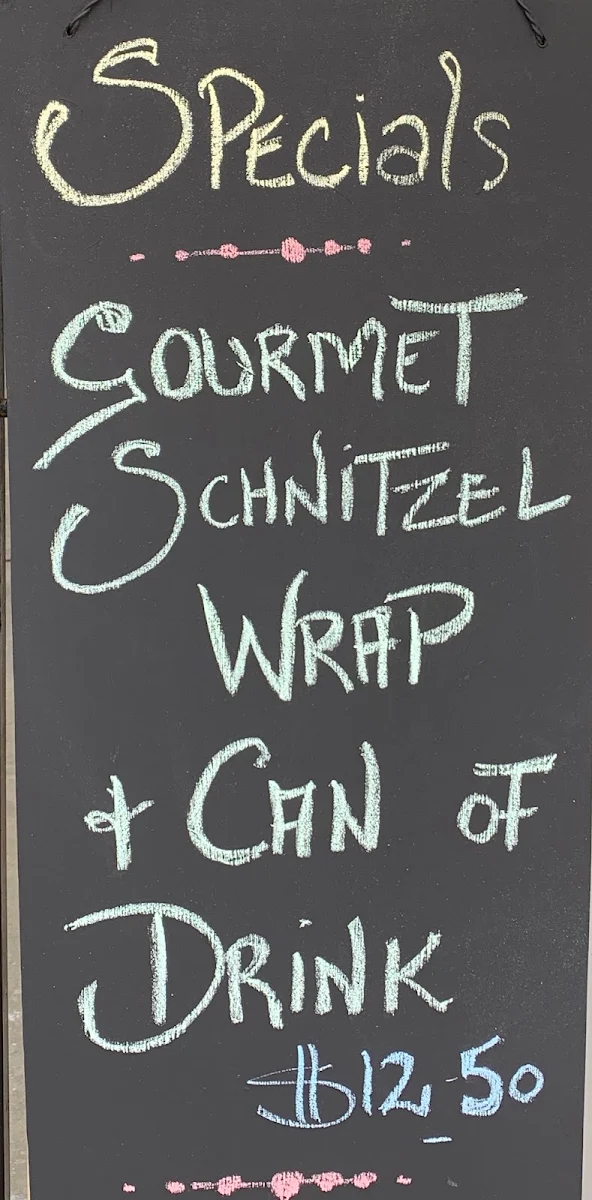 Specials
GOURMET
SCHNiTZEL
WRAP
& CAN OF
DRiNK
$12.50